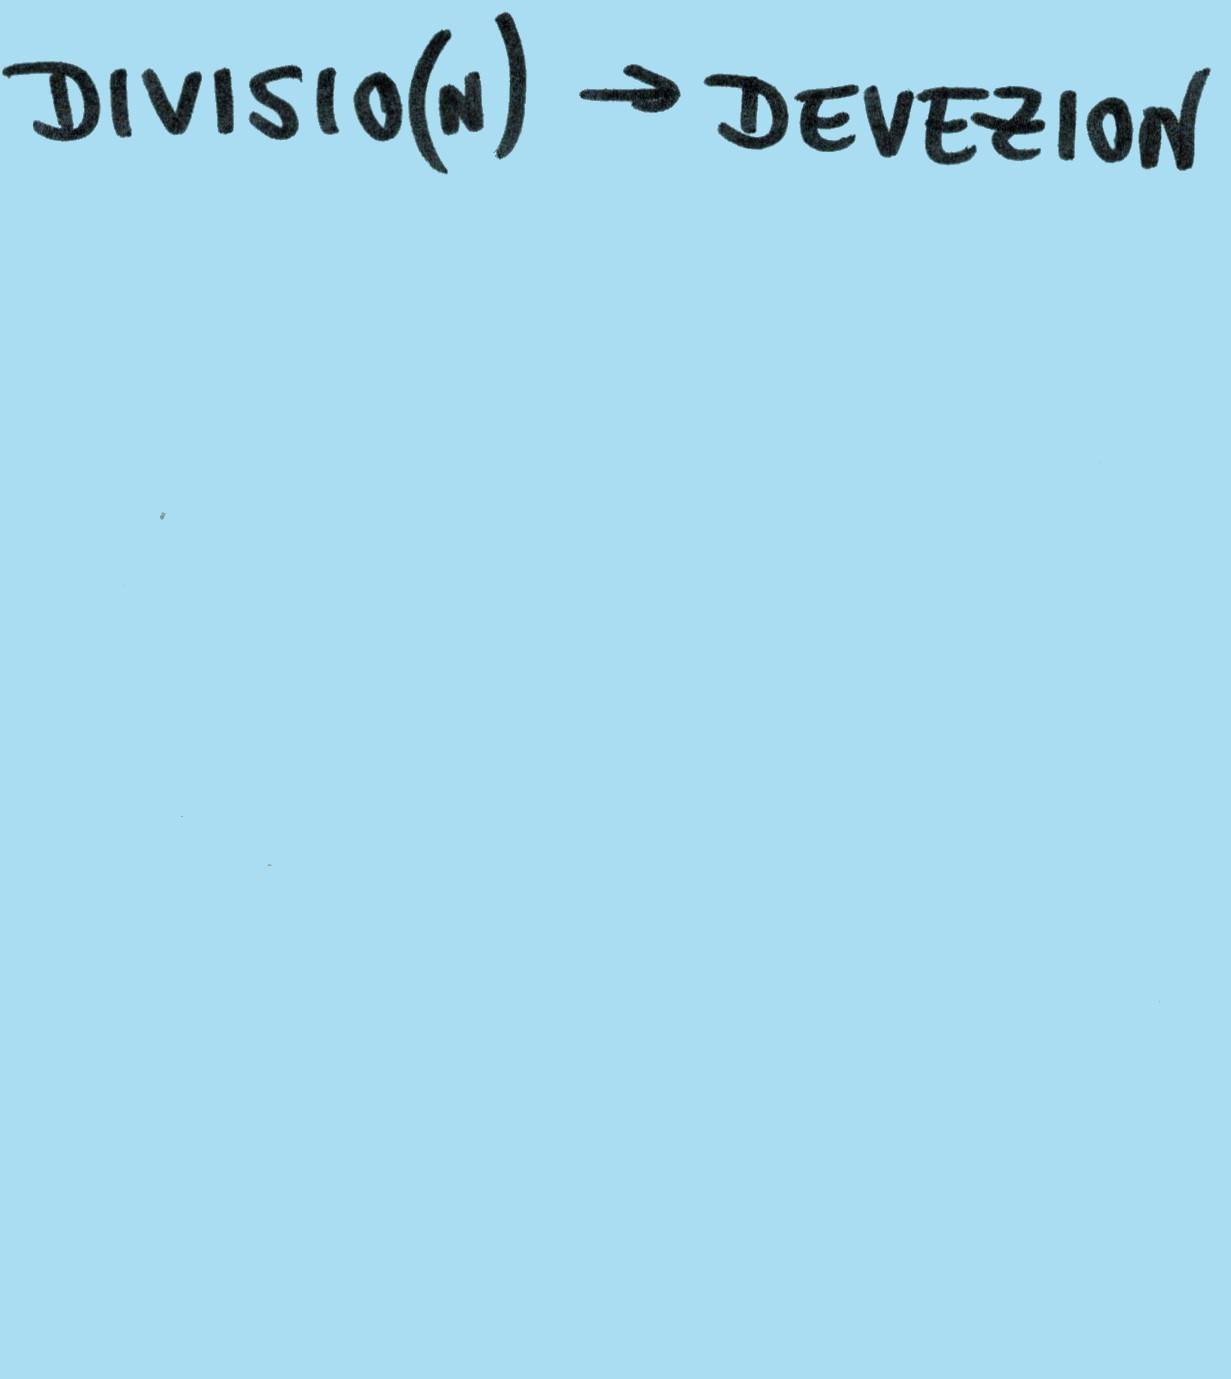 DIVISIO(N) → DEVEZION